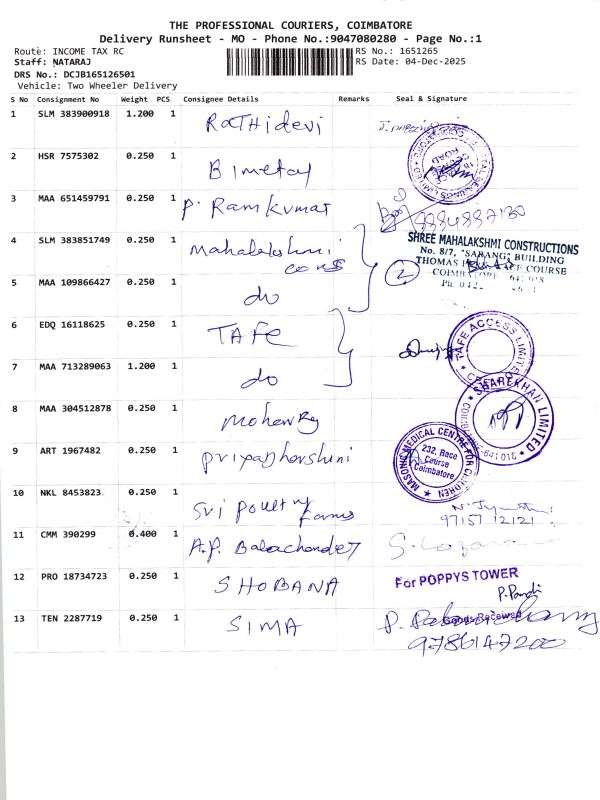 THE PROFESSIONAL COURIERS, COIMBATORE
Delivery Runsheet - MO - Phone No.:9047080280 - Page No.:1
Route: INCOME TAX RC
RS No.: 1651265
Staff: NATARAJ
RS Date: 04-Dec-2025
DRS No.: DCJB165126501
Vehicle: Two Wheeler Delivery
S No Consignment No Weight PCS Consignee Details Remarks Seal & Signature
1 SLM 383900918 1.200 1 Rathidevi
2 HSR 7575302 0.250 1 Bimetal
3 MAA 651459791 0.250 1 P. Ramkumar 9994997130
4 SLM 383851749 0.250 1 Mahalakshmi cons
SHREE MAHALAKSHMI CONSTRUCTIONS
No. 8/7, "SARANG" BUILDING
THOMAS COURSE
2
5 MAA 109866427 0.250 1 do
6 EDQ 16118625 0.250 1 TAFE
TAFE ACCESS LIMITED
7 MAA 713289063 1.200 1 do
SHAREKHAN LIMITED
8 MAA 304512878 0.250 1
MASONIC MEDICAL CENTRE FOR CHILDREN
232, Race
Course
Coimbatore.
9 ART 1967482 0.250 1 Priyadharshini
10 NKL 8453823 0.250 1 Sri Poultry Farms
97157 12121
11 CMM 390299 0.400 1 A.P. Balachander
12 PRO 18734723 0.250 1 SHOBANA
For POPPYS TOWER
P. Pandi
13 TEN 2287719 0.250 1 SIMA
Goods Received
9786147200